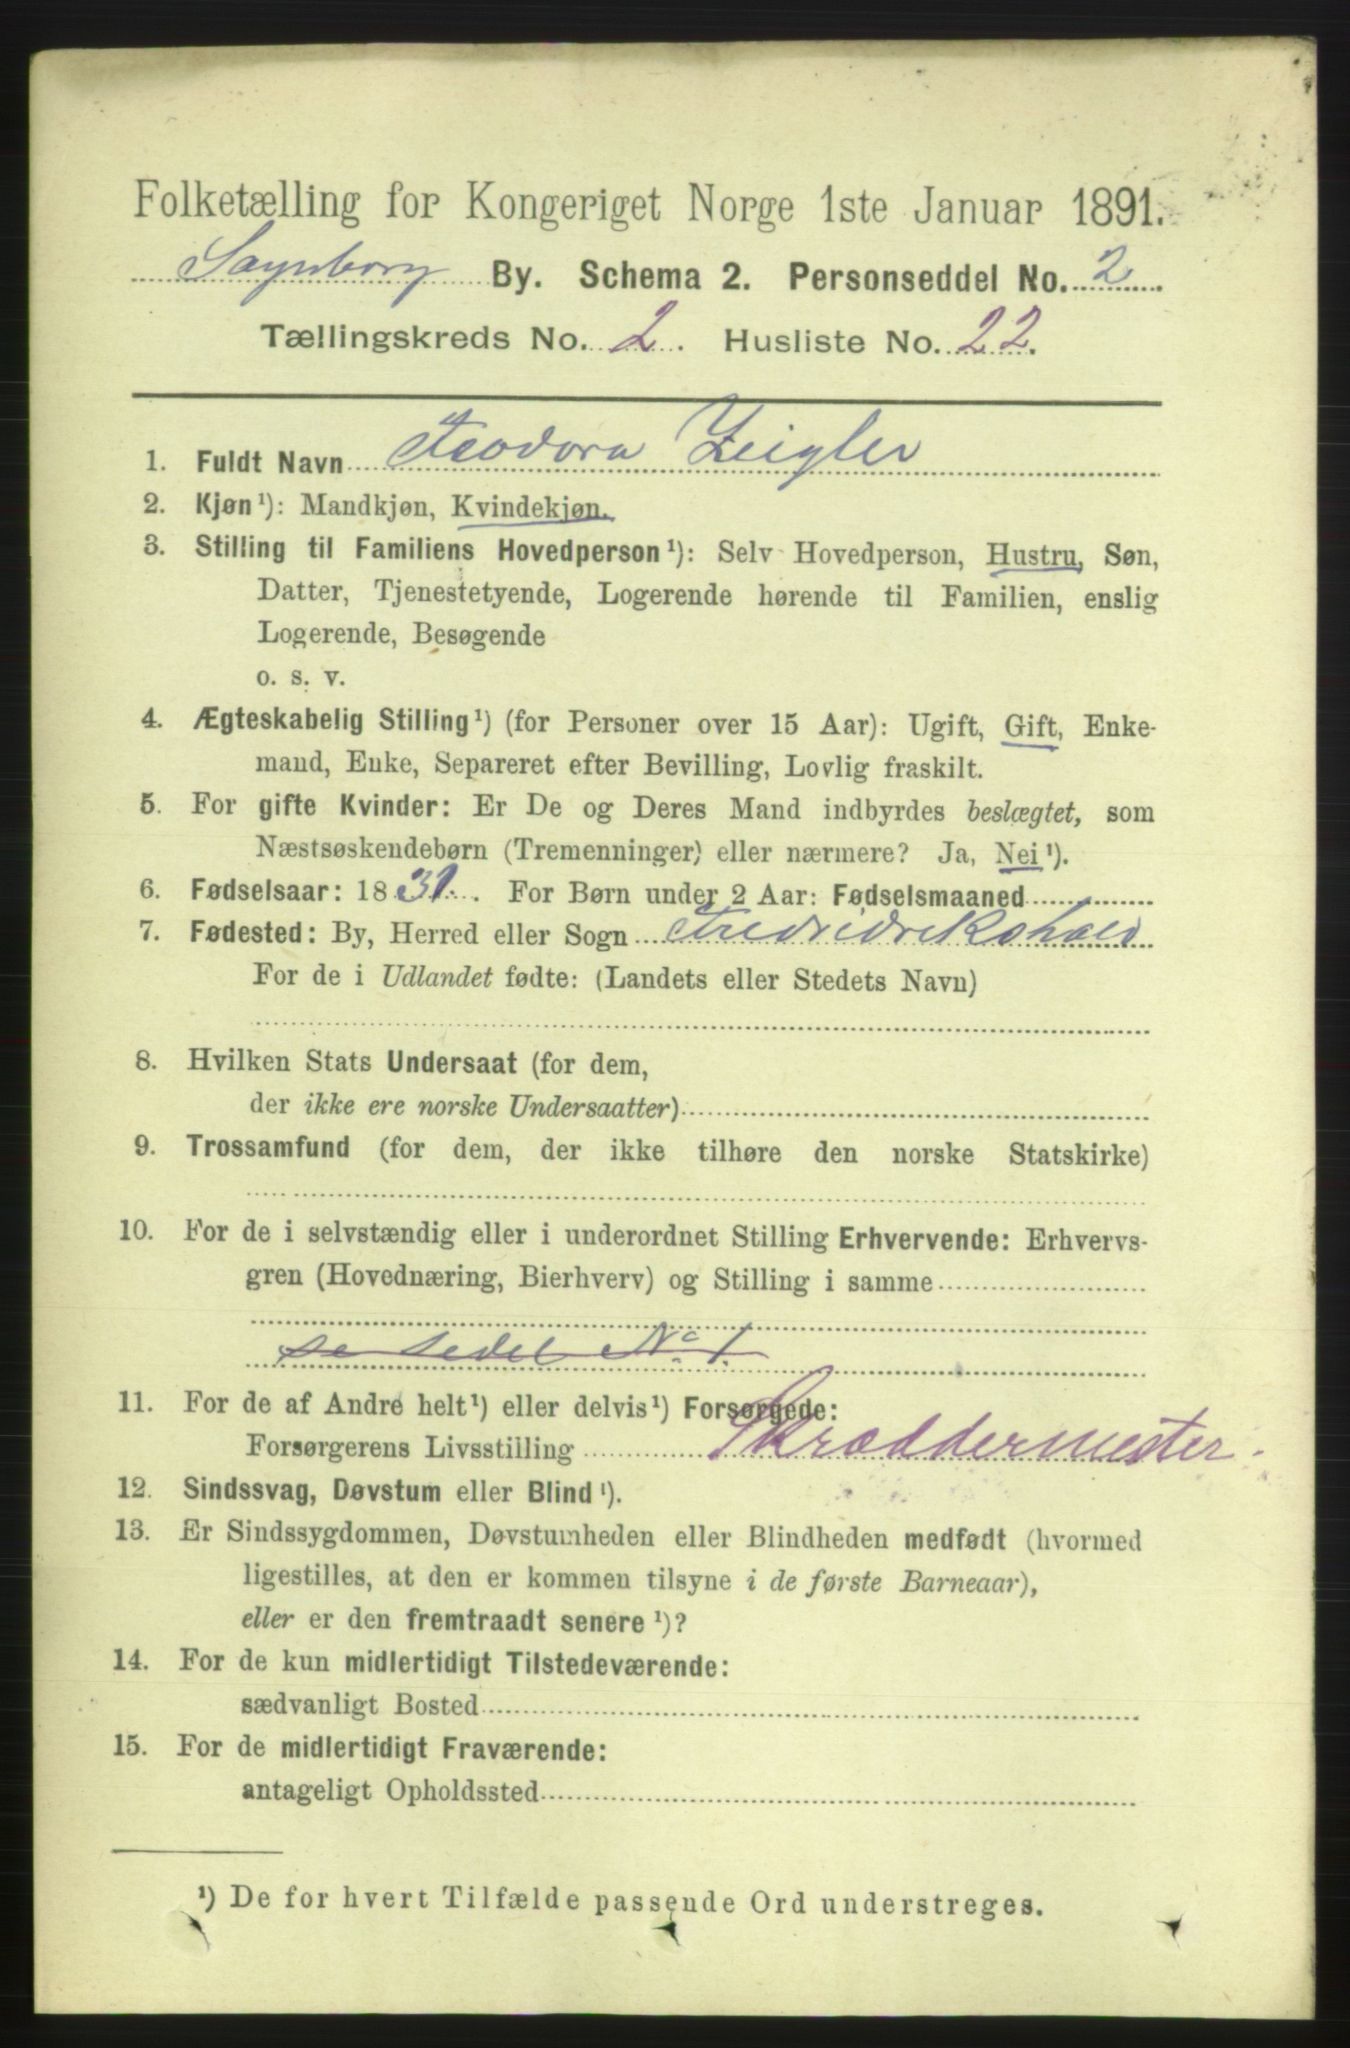 Folketælling for Kongeriget Norge 1ste Januar 1891.
By. Schema 2. Personseddel No. 2.
Tællingskreds No. 2. Husliste No. 22.
1. Fuldt Navn Teodora Zeigler
2. Kjøn¹): Mandkjøn, Kvindekjøn.
3. Stilling til Familiens Hovedperson¹): Selv Hovedperson, Hustru, Søn,
Datter, Tjenestetyende, Logerende hørende til Familien, enslig
Logerende, Besøgende
o. s. v.
4. Ægteskabelig Stilling¹) (for Personer over 15 Aar): Ugift, Gift, Enke-
mand, Enke, Separeret efter Bevilling, Lovlig fraskilt.
5. For gifte Kvinder: Er De og Deres Mand indbyrdes beslægtet, som
Næstsøskendebørn (Tremenninger) eller nærmere? Ja, Nei¹).
6. Fødselsaar: 1831. For Børn under 2 Aar: Fødselsmaaned
7. Fødested: By, Herred eller Sogn Fredridrikshald
For de i Udlandet fødte: (Landets eller Stedets Navn)
8. Hvilken Stats Undersaat (for dem,
der ikke ere norske Undersaatter)
9. Trossamfund (for dem, der ikke tilhøre den norske Statskirke)
10. For de i selvstændig eller i underordnet Stilling Erhvervende: Erhvervs-
gren (Hovednæring, Bierhverv) og Stilling i samme
se sedel No 1.
11. For de af Andre helt¹) eller delvis¹) Forsørgede:
Forsørgerens Livsstilling Skræddermester.
12. Sindssvag, Døvstum eller Blind¹).
13. Er Sindssygdommen, Døvstumheden eller Blindheden medfødt (hvormed
ligestilles, at den er kommen tilsyne i de første Barneaar),
eller er den fremtraadt senere¹)?
14. For de kun midlertidigt Tilstedeværende:
sædvanligt Bosted
15. For de midlertidigt Fraværende:
antageligt Opholdssted
¹) De for hvert Tilfælde passende Ord understreges.